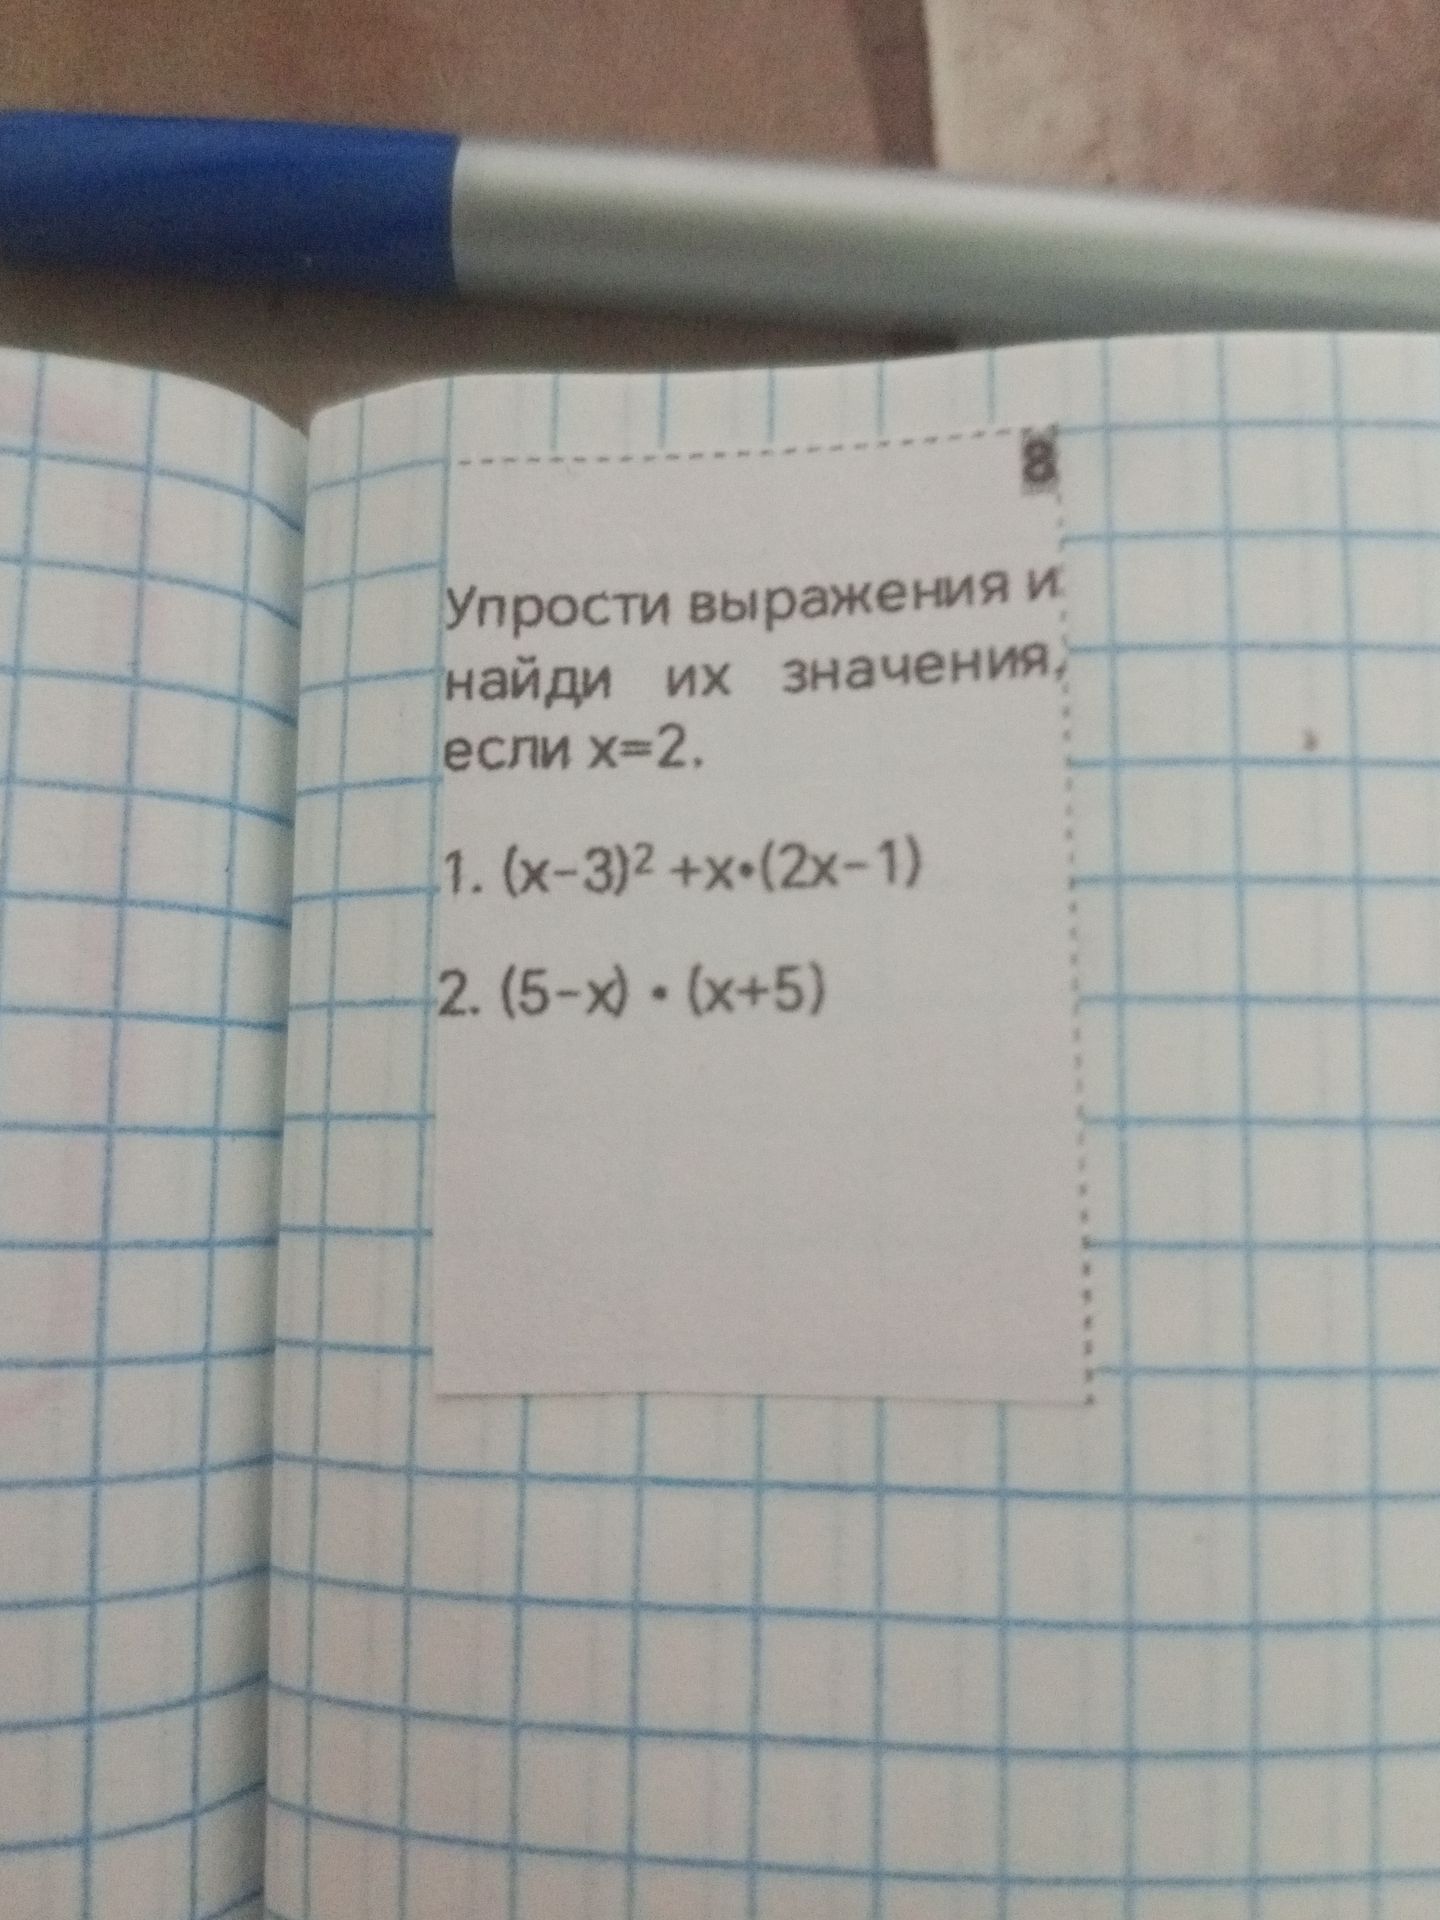 8
Упрости выражения и
найди их значения,
если x=2.
1. (x-3)² +x•(2x-1)
2. (5-x) • (x+5)